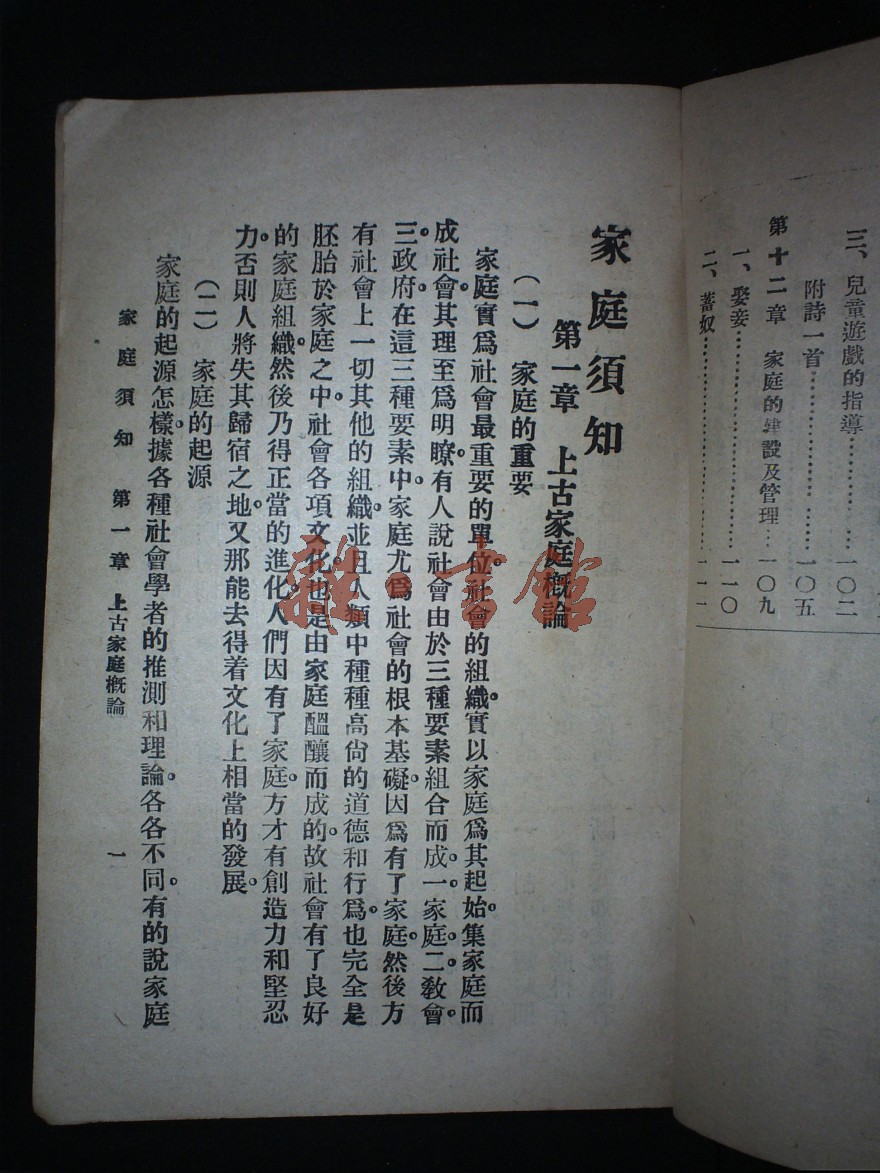 三、兒童遊戲的指導……………一〇二
附詩一首……………一〇五
第十二章 家庭的建設及管理…一〇九
一、娶妾……………一一〇
二、蓄奴……………一一一
家庭須知
第一章 上古家庭概論
(一) 家庭的重要
家庭實爲社會最重要的單位。社會的組織。實以家庭爲其起始。集家庭而
成社會。其理至爲明瞭。有人說社會由於三種要素組合而成。一家庭。二教會。
三政府。在這三種要素中。家庭尤爲社會的根本基礙。因爲有了家庭。然後方
有社會上一切其他的組織。並且人類中種種高尙的道德和行爲。也完全是
胚胎於家庭之中。社會各項文化。也是由家庭醞釀而成的。故社會有了良好
的家庭組織。然後乃得正當的進化。人們因有了家庭。方才有創造力和堅忍
力。否則人將失其歸宿之地。又那能去得着文化上相當的發展。
(二) 家庭的起源
家庭的起源怎樣。據各種社會學者的推測和理論。各各不同。有的說家庭
家庭須知 第一章 上古家庭概論 一
雜·書館